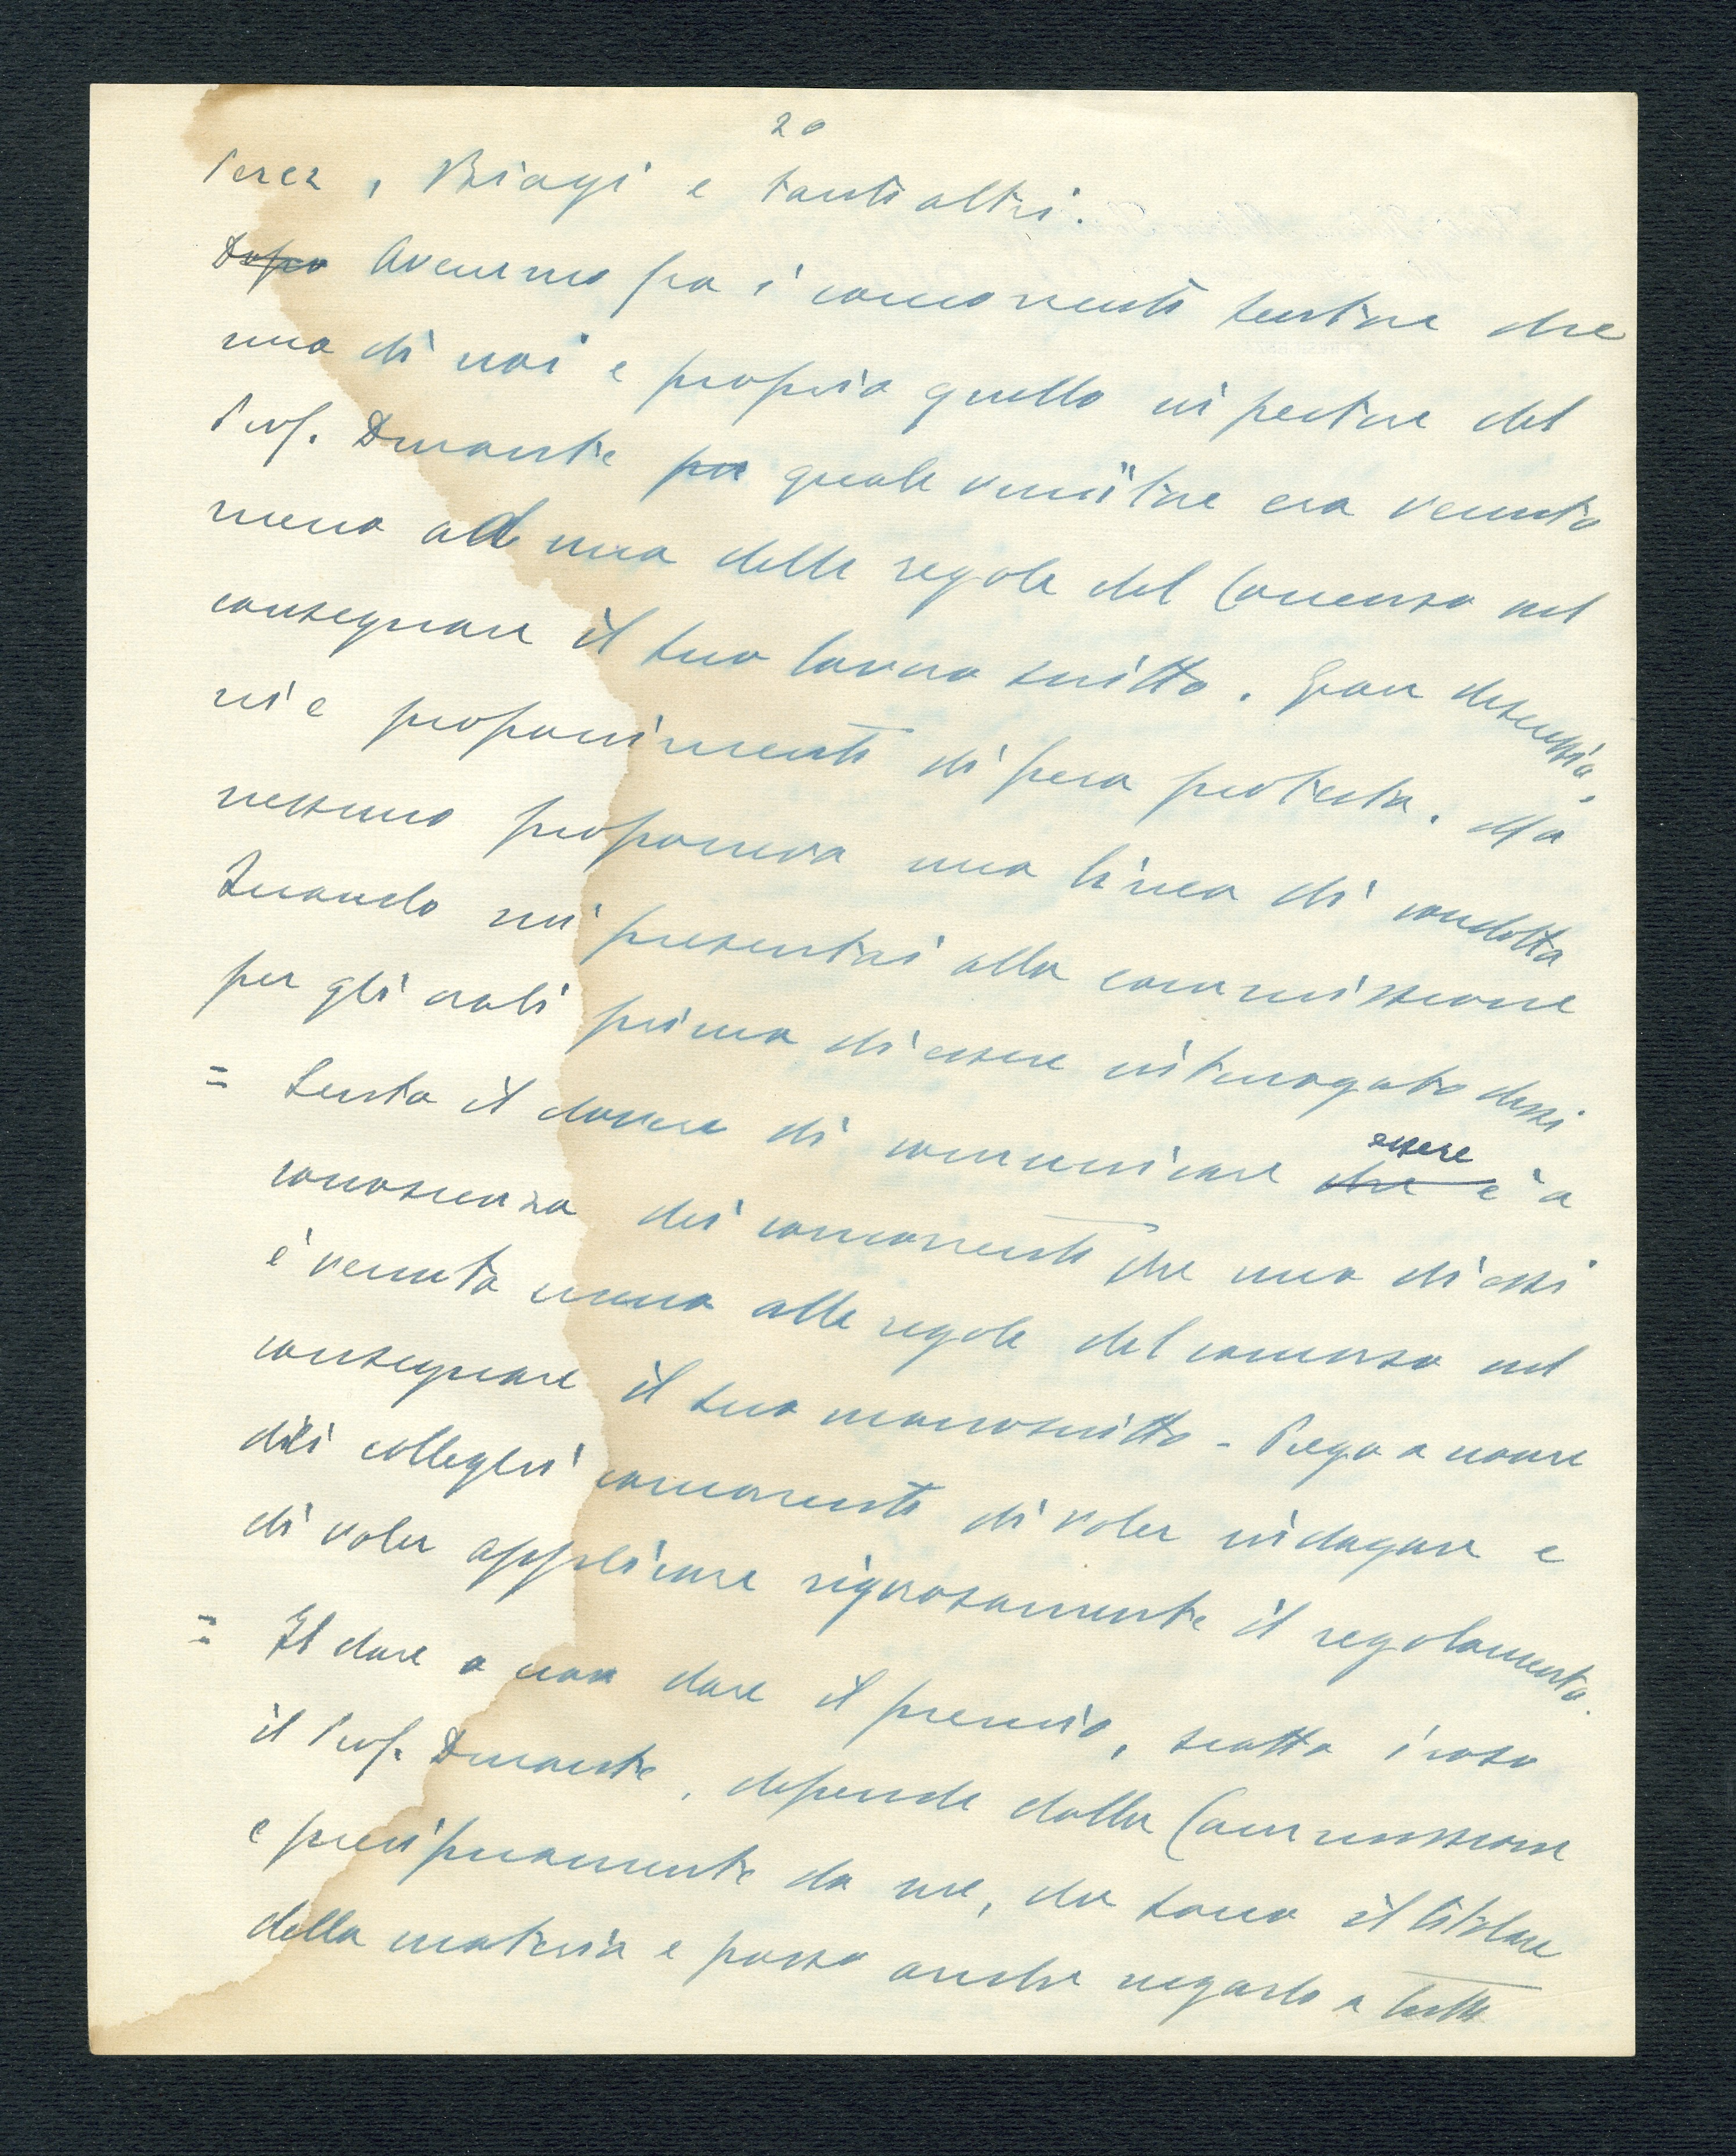 20
Perez, Biagi e tanti altri.
Dopo Avemmo fra i concorrenti sentore che
uno di noi e proprio quello in pectore del
Prof. Durante quale vincitore era venuto
meno ad una delle regole del Concorso nel
consegnare il suo lavoro scritto. Gran discussio-
ni e proponimenti di fiera protesta. Ma
nessuno proponeva una linea di condotta
Quando mi presentai alla commissione
per gli orali prima di essere interrogato dissi
= Sento il dovere di comunicare che è essere a
conoscenza dei concorrenti che uno di essi
è venuto meno alle regole del concorso nel
consegnare il suo manoscritto - Prego a nome
dei colleghi concorrenti di voler indagare e
di voler applicare rigorosamente il regolamento.
= Il dare o non dare il premio, scatta iroso
il Prof. Durante, dipende dalla Commissione
e precipuamente da me, che sono il titolare
della materia e posso anche negarlo a tutti